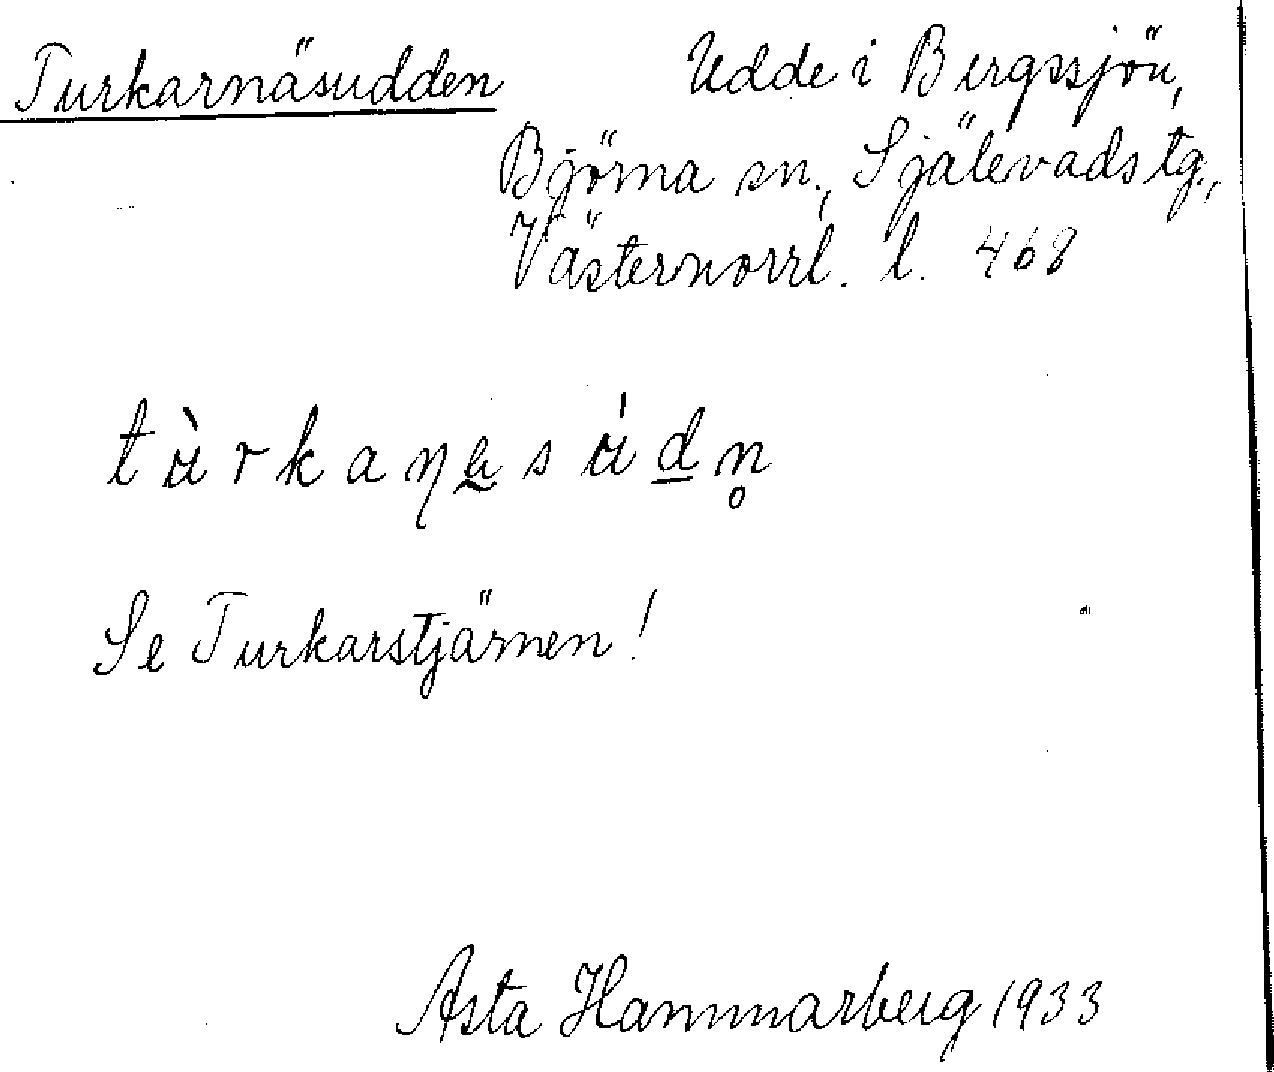 Turkarnäsudden Udde i Bergssjön,
Björna sn., Själevads tg.,
Västernorrl. l. 468
tùrkanęsúdn̥
Se Turkarstjärnen!
Asta Hammarberg 1933